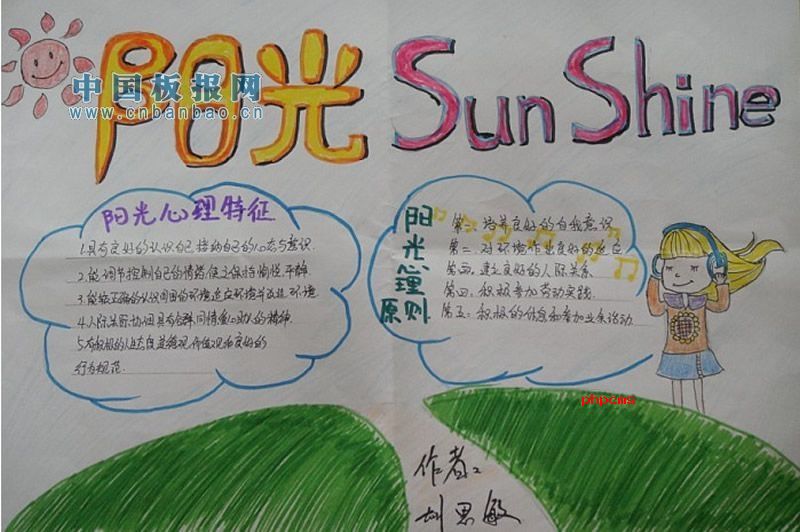 阳光 Sun Shine
中国板报网
www.cnbanbao.cn
阳光心理特征
1.具有良好的认识自己接纳自己的心态与意识.
2.能调节控制自己的情绪使之保持愉悦、平静.
3.能较正确的认识周围的环境适应环境并改造环境
4.人际关系协调具有合群,同情爱心助人的精神.
5.有积极的人生态度道德观,价值观和良好的
行为规范.
阳光心理原则
第一:培养良好的自我意识
第二:对环境作出良好的适应
第四:积极参加劳动实践.
第五:积极的休息和参加业余活动
phpcms
作者:
刘思敏